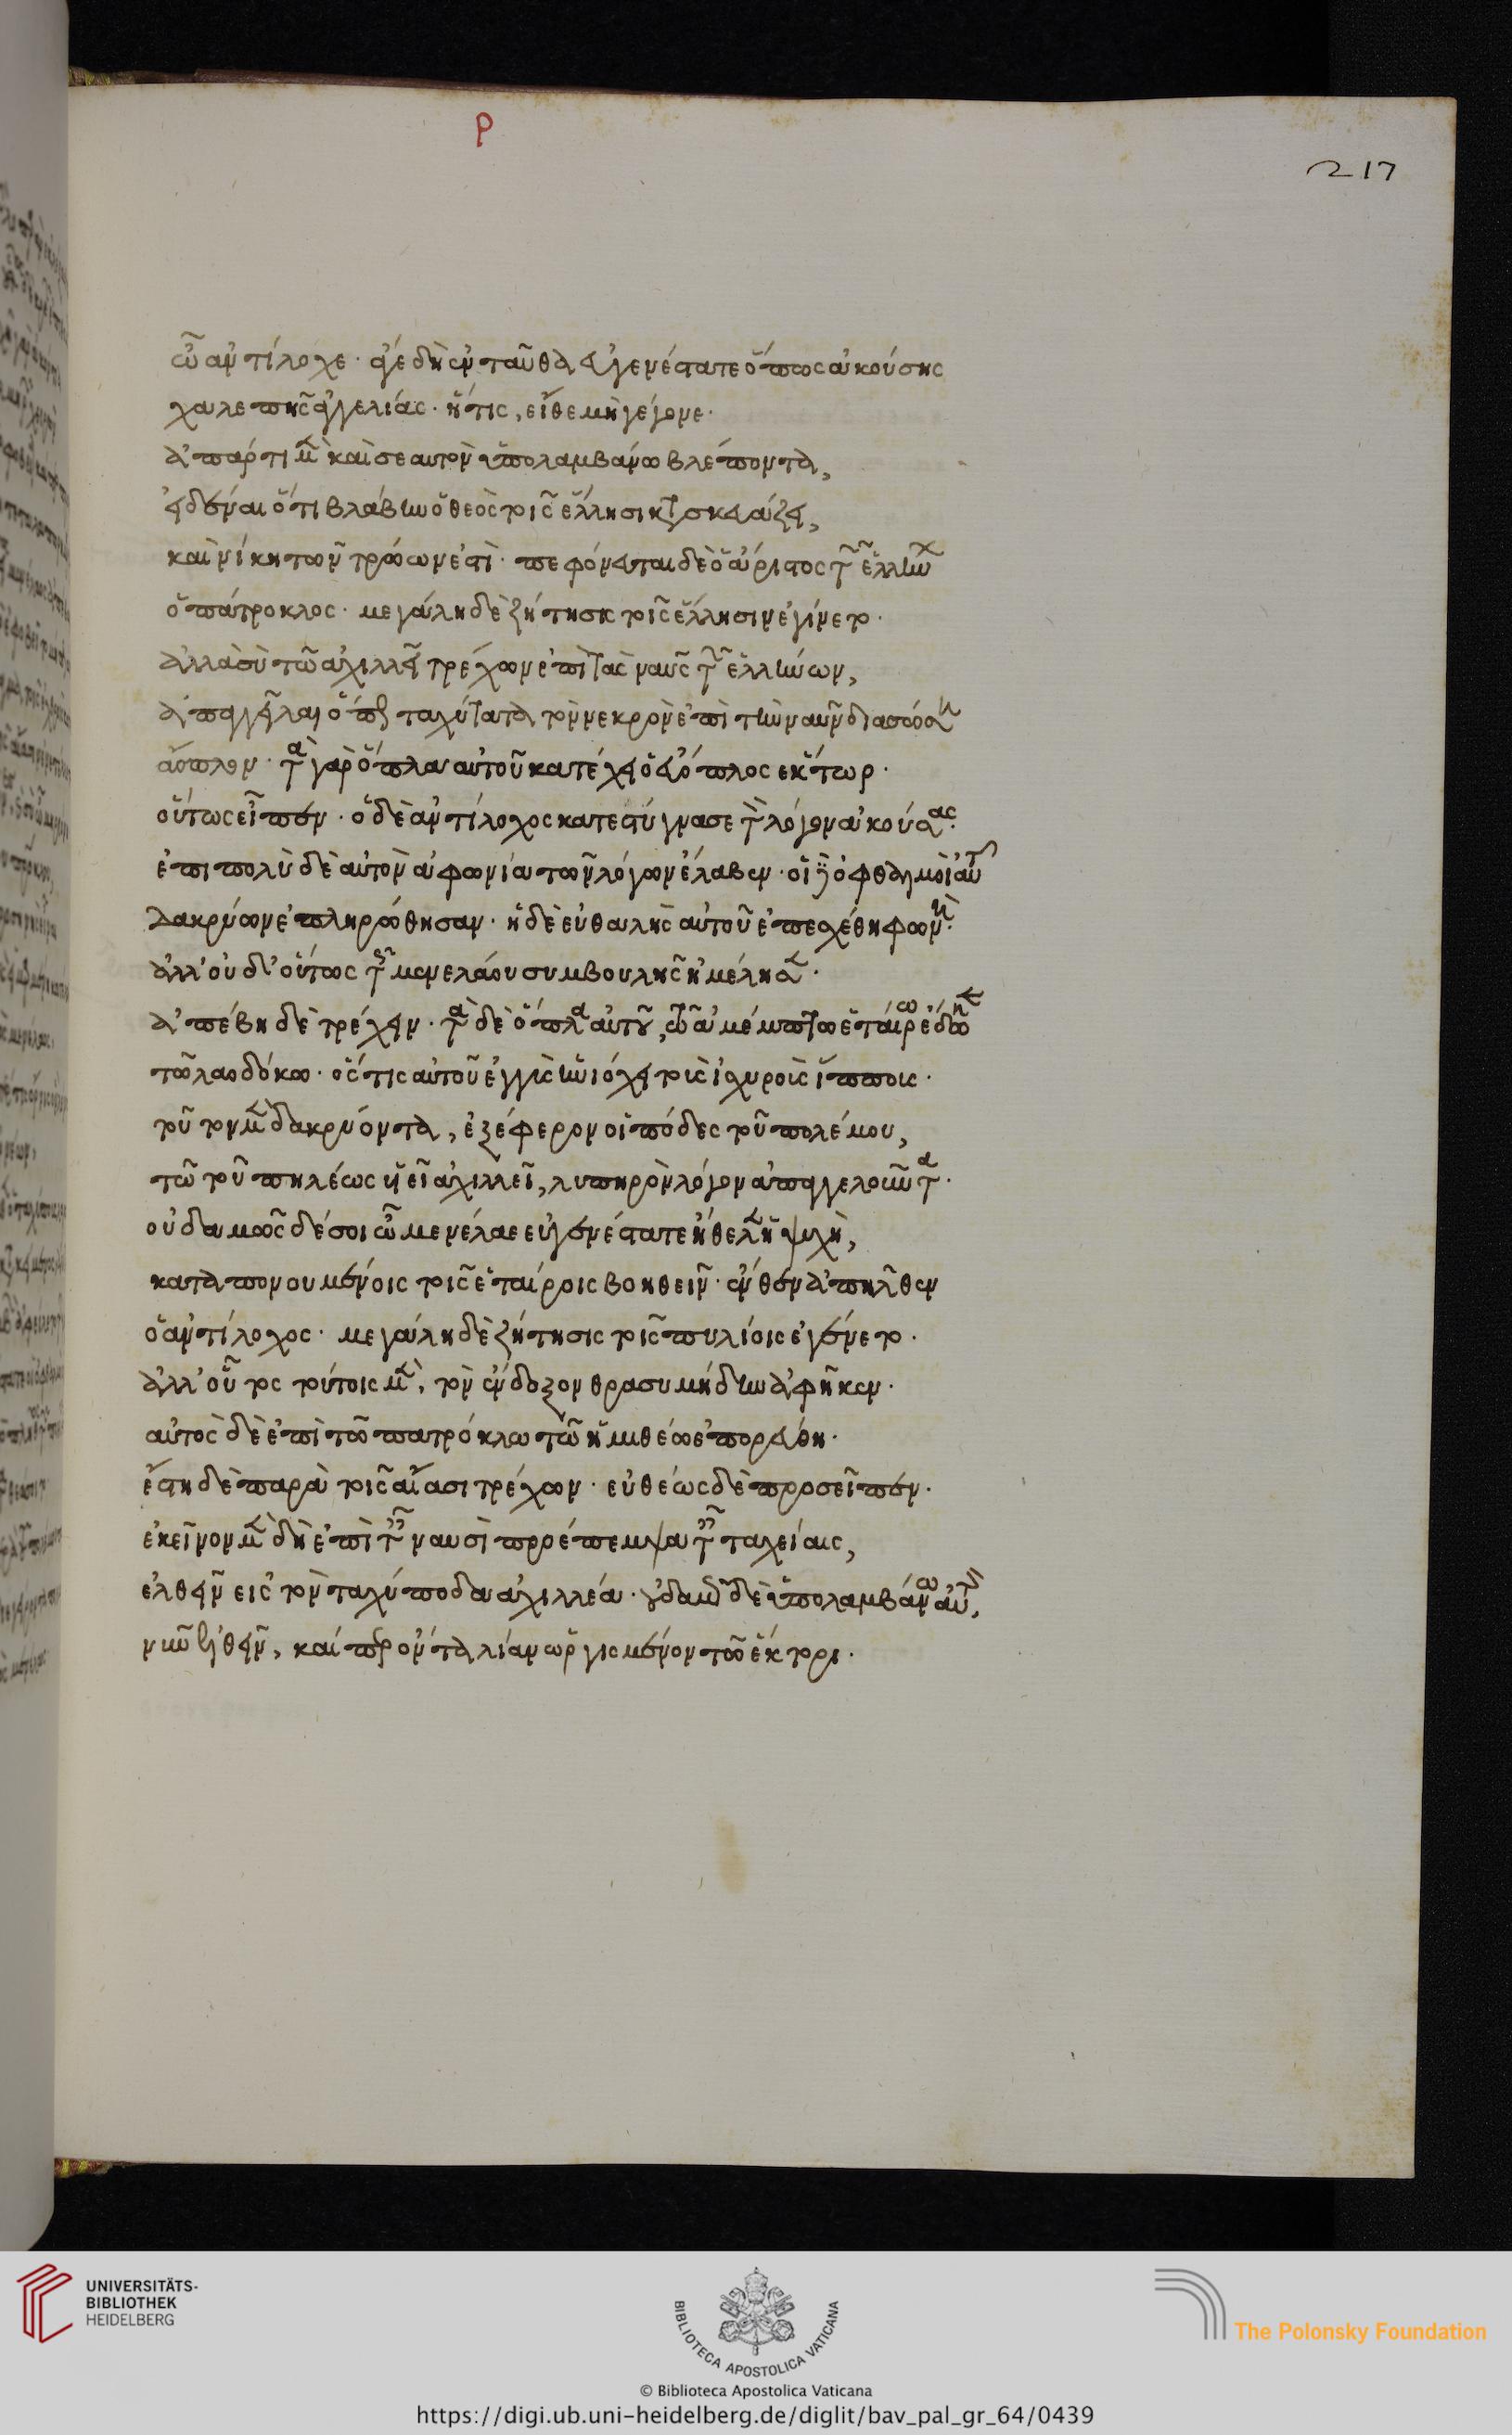 Ρ
217
ὦ ἀντίλοχε· ἄγε δὴ ἐνταῦθα εὐγενέστατε ὅπως ἀκούσης
χαλεπῆς ἀγγελίας· ἥτις, εἴθε μὴ γέγονε·
ἀπάρτι μὲν καὶ σεαυτὸν ὑπολαμβάνω βλέποντα,
εἰδέναι ὅτι βλάβην ὁ θεὸς τοῖς ἕλλησι κατασκευάζει,
καὶ νίκη τῶν τρώων ἐστὶ· πεφόνευται δὲ ὁ ἄριστος τῶν ἑλλήνων
ὁ πάτροκλος· μεγάλη δὲ ζήτησις τοῖς ἕλλησιν ἐγίνετο·
ἀλλὰ σὺ τῶ ἀχιλλεῖ τρέχων ἐπὶ τὰς ναῦς τῶν ἑλλήνων,
ἀπαγγεῖλαι ὅπως ταχύτατα τὸν νεκρὸν ἐπὶ τὴν ναῦν διασώση
ἄοπλον· τὰ γὰρ ὅπλα αὐτοῦ κατέχει ὁ εὔοπλος ἕκτωρ·
οὕτως εἶπεν· ὁ δὲ ἀντίλοχος κατεστύγνασε τὸν λόγον ἀκούσας·
ἐπιπολὺ δὲ αὐτὸν ἀφωνία τῶν λόγων ἔλαβεν· οἱ δὲ ὀφθαλμοὶ αὐτοῦ
δακρύων ἐπληρώθησαν· ἡ δὲ εὐθαλὴς αὐτοῦ ἐπεσχέθη φωνὴ·
ἀλλ' οὐδ' οὕτως τῆς μενελάου συμβουλῆς ἠμέλησεν·
ἀπέβη δὲ τρέχειν· τὰ δὲ ὅπλα αὐτοῦ, τῶ ἀμέμπτω ἑταίρω ἔδωκεν
τῶ λαοδόκω· ὅστις αὐτοῦ ἐγγὺς ἡνιόχει τοῖς ἰσχυροῖς ἵπποις·
τοῦτον μὲν δακρύοντα, ἐξέφερον οἱ πόδες τοῦ πολέμου,
τῶ τοῦ πηλέως υἱεῖ ἀχιλλεῖ, λυπηρὸν λόγον ἀπαγγελοῦντα·
οὐδαμῶς δέ σοι ὦ μενέλαε εὐγενέστατε ἤθελεν ἡ ψυχὴ,
καταπονουμένοις τοῖς ἑταίροις βοηθεῖν· ἔνθεν ἀπῆλθεν
ὁ ἀντίλοχος· μεγάλη δὲ ζήτησις τοῖς πυλίοις ἐγένετο·
ἀλλ' οὗτος τούτοις μὲν, τὸν ἔνδοξον θρασυμήδην ἀφῆκεν·
αὐτὸς δὲ ἐπὶ τῶ πατρόκλω τῶ ἡμιθέω ἐπορεύθη·
ἔστη δὲ παρὰ τοῖς αἴασι τρέχων· εὐθέως δὲ προσεῖπεν·
ἐκεῖνον μὲν δὴ ἐπὶ ταῖς ναυσὶ προέπεμψα ταῖς ταχείαις,
ἐλθεῖν εἰς τὸν ταχύποδα ἀχιλλέα· οὐδαμῶς δὲ ὑπολαμβάνω αὐτὸν,
νῦν ἐλθεῖν, καίπερ ὄντα λίαν ὠργισμένον τῶ ἕκτορι·
UNIVERSITÄTS-
BIBLIOTHEK
HEIDELBERG
BIBLIOTECA APOSTOLICA VATICANA
The Polonsky Foundation
© Biblioteca Apostolica Vaticana
https://digi.ub.uni-heidelberg.de/diglit/bav_pal_gr_64/0439